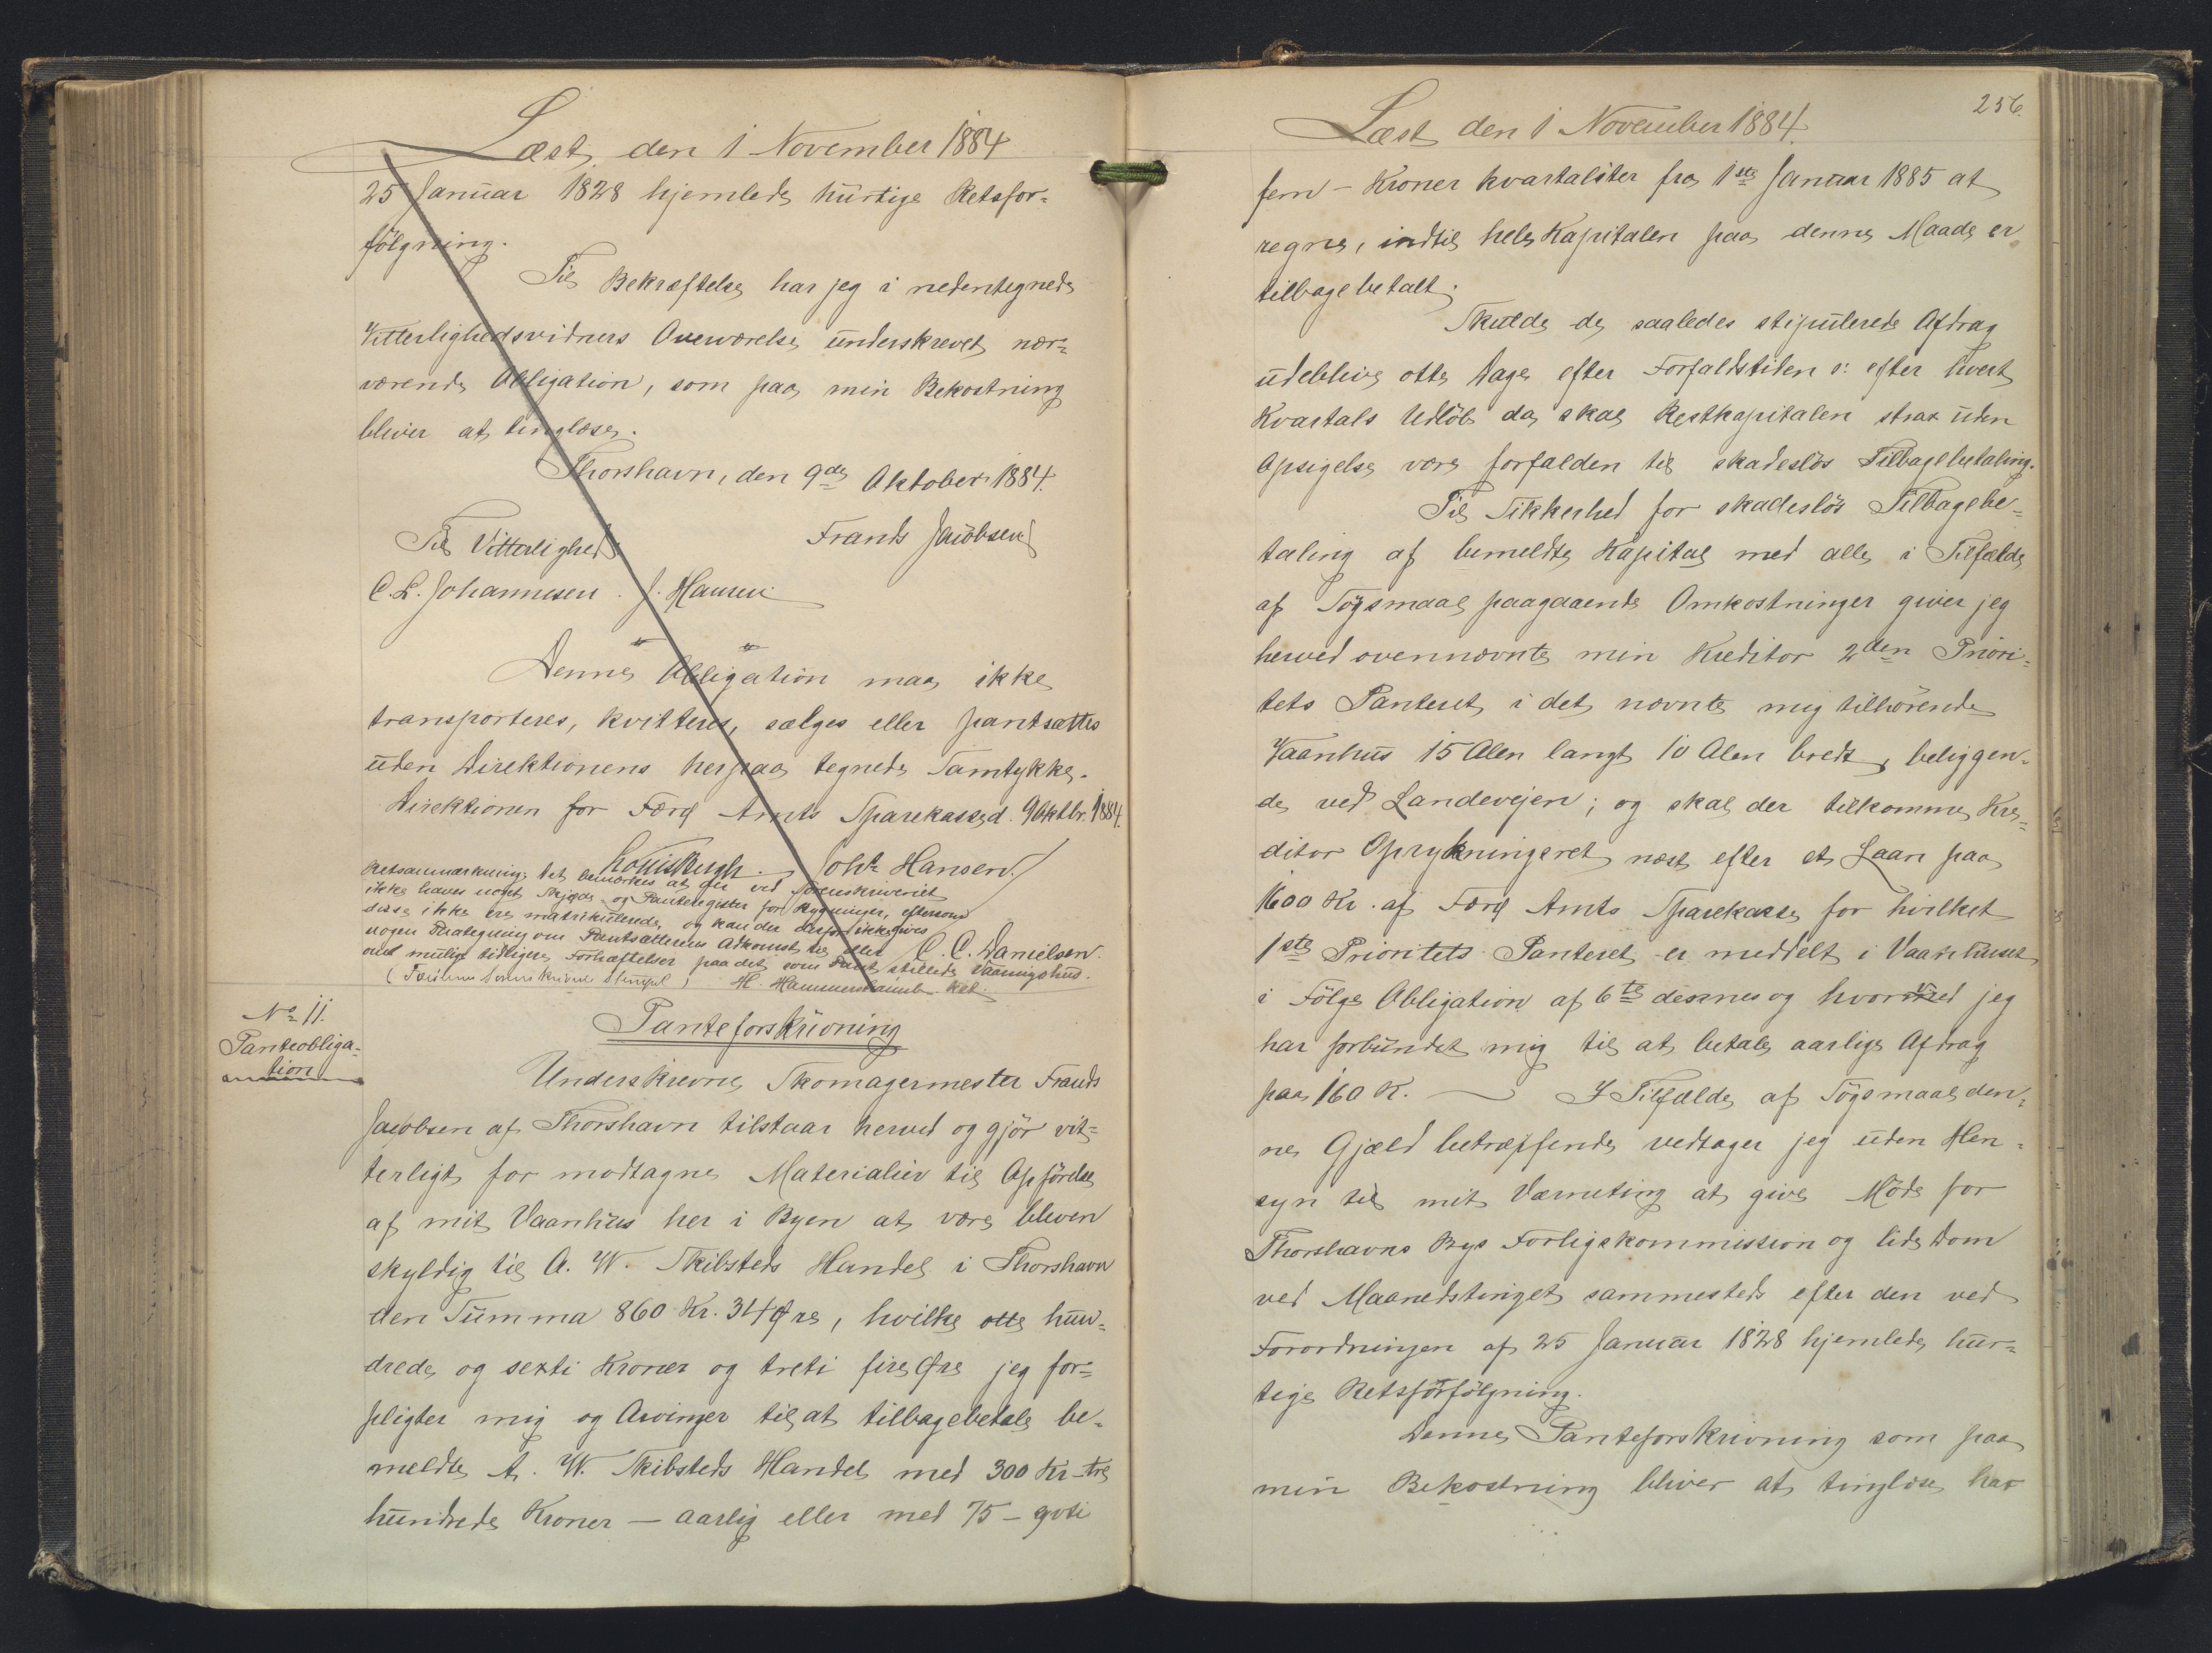 Læst den 1 November 1884
25 Januar 1828 hjemlede hurtige Retsfor-
følgning.
Til Bekræftelse har jeg i nedentegnede
Vitterlighedsvidners Overværelse underskrevet nær-
værende Obligation, som paa min Bekostning
bliver at tinglæse.
Thorshavn, den 9de Oktober 1884.
Til Vitterlighed Frants Jacobsen
C. L. Johannesen. J. Hansen
Denne Obligation maa ikke
transporteres, kvitteres, sælges eller pantsættes
uden Direktionens herpaa tegnede Samtykke.
Direktionen for Færø Amts Sparekasse d. 9 Oktbr. 1884.
Louis Bergh. Joh.s Hansen
Retsanmærkning: Det bemærkes at der ved Sorenskriveriet
ikke haves noget Skjøde- og Panteregister for Bygninger, eftersom
disse ikke ere matrikulerede, og kan der derfor ikke gives
nogen Paategning om Pantsætterens Adkomst til eller C. C. Danielsen.
om mulige tidligere Forhæftelser paa det som Pant stillede Vaaningshus.
H. Hammershaimb. kst.
No 11.
Panteobliga-
tion
Panteforskrivning
Underskrevne Skomagermester Frands
Jacobsen af Thorshavn tilstaar herved og gjør vit-
terligt for modtagne Materialier til Opførelse
af mit Vaanhus her i Byen at være bleven
skyldig til A. W. Skibsteds Handel i Thorshavn
den Summa 860 Kr. 34 Øre, hvilke otte hun-
drede og sexti Kroner og treti fire Øre jeg for-
pligter mig og Arvinger til at tilbagebetale be-
meldte A. W. Skibsteds Handel med 300 Kr - tre
hundrede Kroner - aarlig eller med 75 - syvti
256.
Læst den 1 November 1884.
fem - Kroner kvartaliter fra 1ste Januar 1885 at
regne, indtil hele Kapitalen paa denne Maade er
tilbagebetalt.
Skulde de saaledes stipulerede Afdrag
udeblive otte Dage efter Forfaldstiden ɔ: efter hvert
Kvartals Udløb da skal Restkapitalen strax uden
Opsigelse være forfalden til skadesløs Tilbagebetaling.
Til Sikkerhed for skadesløs Tilbagebe-
taling af bemeldte Kapital med alle i Tilfælde
af Søgsmaal paagaaende Omkostninger giver jeg
herved ovennævnte min Kreditor 2den Priori-
tets Panteret i det nævnte mig tilhørende
Vaanhus 15 Alen langt 10 Alen bredt, beliggen-
de ved Landevejen; og skal der tilkomme Kre-
ditor Oprykningsret næst efter et Laan paa
1600 Kr. af Færø Amts Sparekasse for hvilket
1ste Prioritets Panteret er meddelt i Vaanhuset
i Følge Obligation af 6te dennes og hvorved jeg
har forbundet mig til at betale aarlige Afdrag
paa 160 K. I Tilfælde af Søgsmaal den-
ne Gjæld betræffende vedtager jeg uden Hen-
syn til mit Værneting at give Møde for
Thorshavns Bys Forligskommission og lide Dom
ved Maanedstinget sammesteds efter den ved
Forordningen af 25 Januar 1828 hjemlede hur-
tige Retsforfølgning.
Denne Panteforskrivning som paa
min Bekostning bliver at tinglæse har